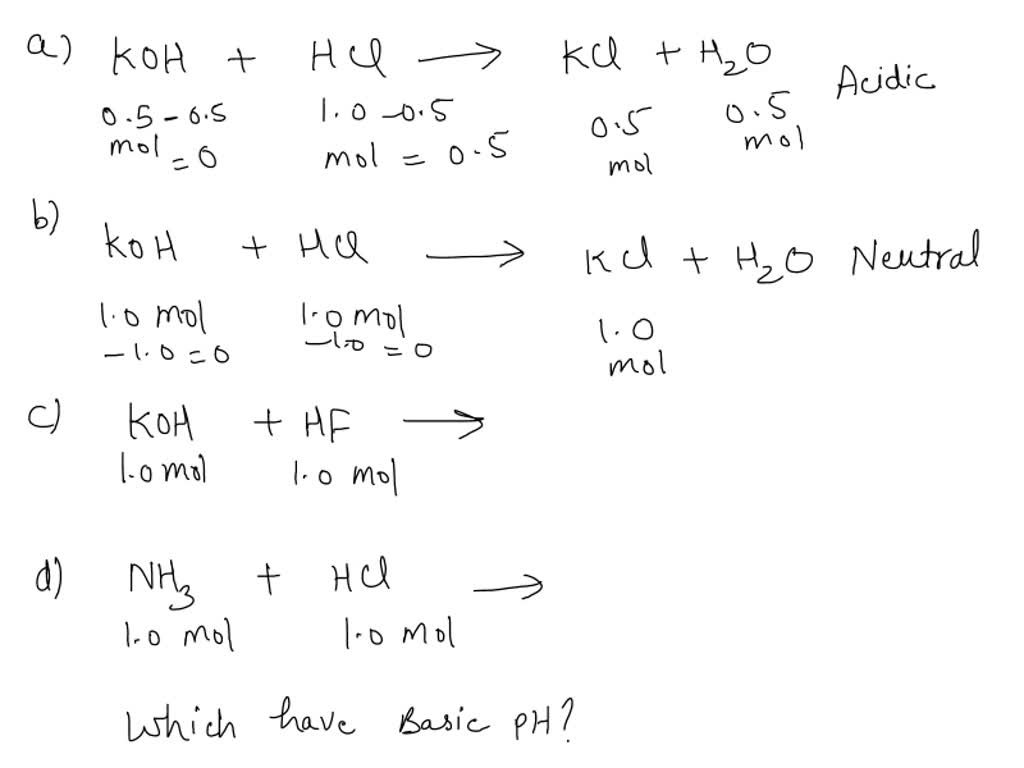 a) KOH + HCl → KCl + H₂O Acidic
0.5 - 0.5 1.0 - 0.5 0.5 0.5
mol = 0 mol = 0.5 mol mol
b) KOH + HCl → KCl + H₂O Neutral
1.0 mol 1.0 mol 1.0
- 1.0 = 0 - 1.0 = 0 mol
c) KOH + HF →
1.0 mol 1.0 mol
d) NH₃ + HCl →
1.0 mol 1.0 mol
Which have Basic pH?